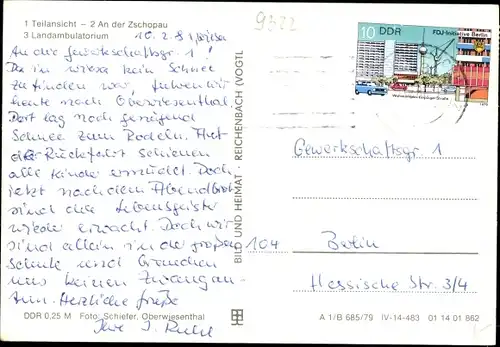 1 Teilansicht – 2 An der Zschopau
3 Landambulatorium
10. 2. 81, Wiesa
An die Gewerkschaftsgr. 1!
Da in Wiesa kein Schnee
zu finden war, fuhren wir
heute nach Oberwiesenthal.
Dort lag noch genügend
Schnee zum Rodeln. Auf
der Rückfahrt schienen
alle Kinder ermüdet. Doch
jetzt nach dem Abendbrot
sind die Lebensgeister
wieder erwacht. Doch wir
sind allein in der großen
Schule und brauchen
uns keinen Zwang an-
tun. Herzliche Grüße
Ihre I.
DDR 0,25 M Foto: Schiefer, Oberwiesenthal
BILD UND HEIMAT · REICHENBACH (VOGTL
9322
10 DDR
FDJ-Initiative Berlin
Gewerkschaftsgr. 1
104 Berlin
Hessische Str. 3/4
A 1/B 685/79 IV-14-483 01 14 01 862